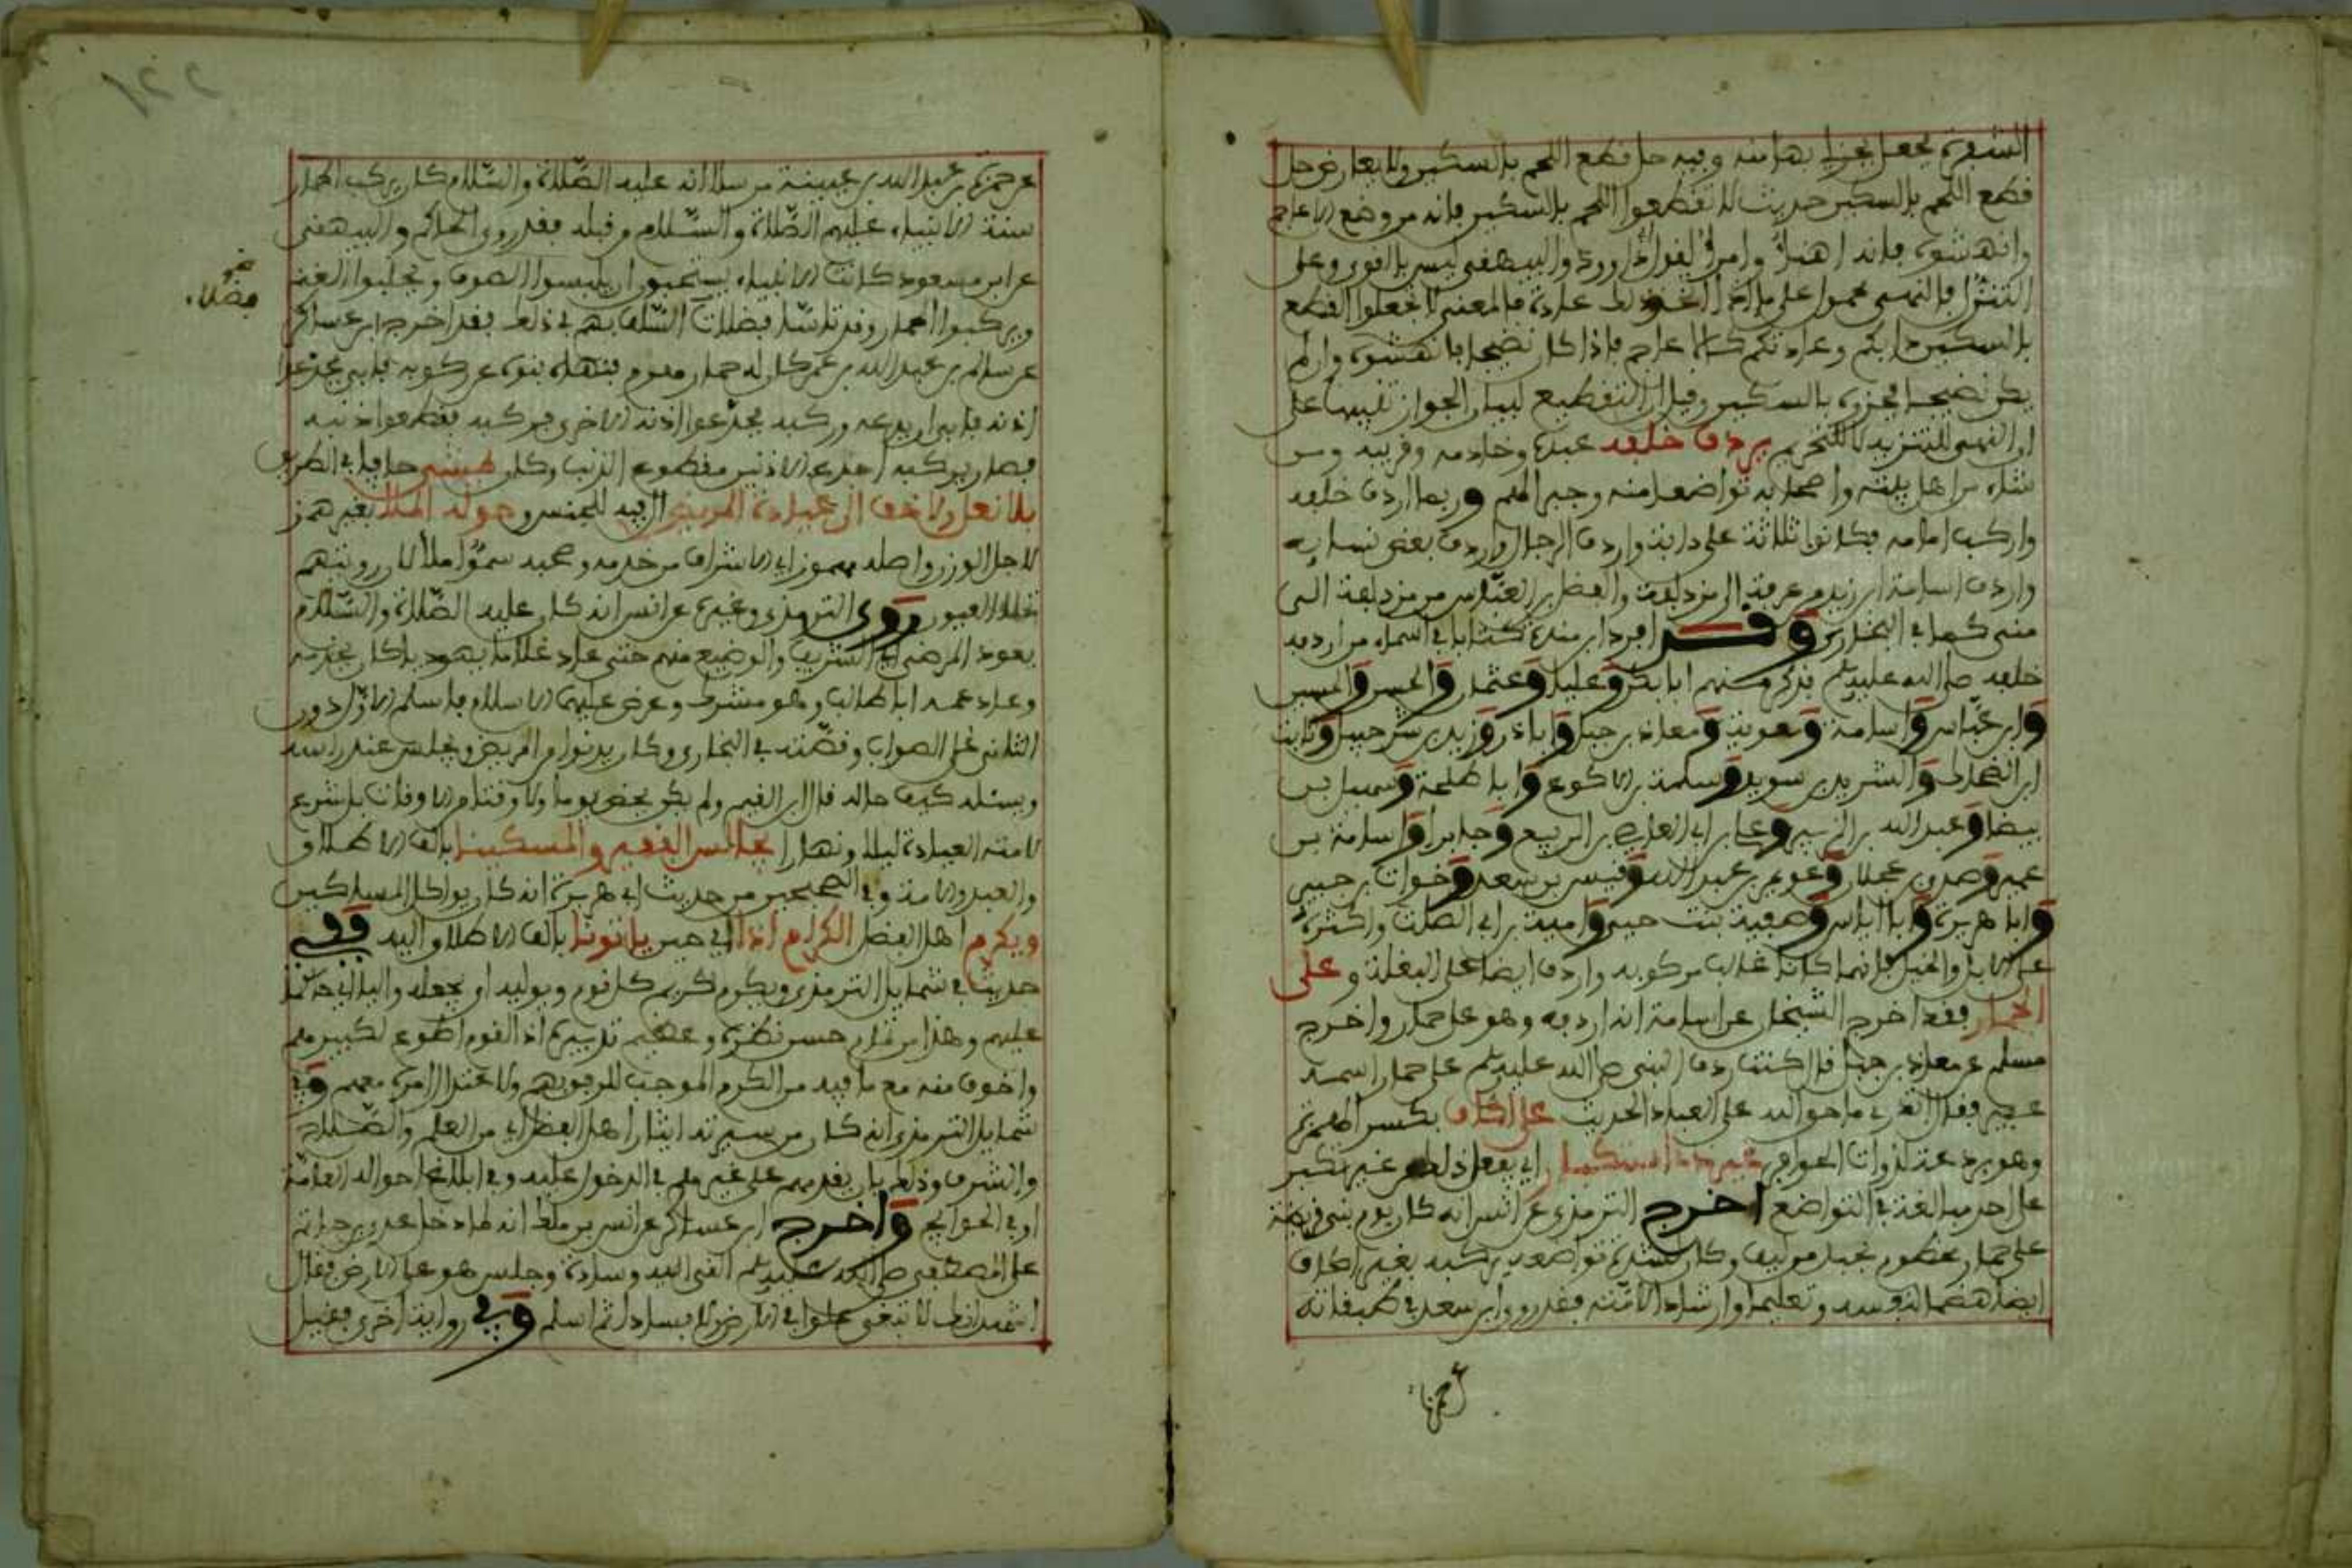 الشفرة فجعل يحز بها منه وفيه حل قطع اللحم بالسكين ولا يعارض حل
قطع اللحم بالسكين حديث لا تقطعوا اللحم بالسكين فإنه من وضع الأعاجم
وانهشوه فإنه أهنأ وأمرأ لقول أبي داوود والبيهقي ليس بالقوي وعلى
التنزل فالنهي محمول على ما إذا اتخذ ذلك عادة فالمعنى لا تجعلوا القطع
بالسكين دأبكم وعادتكم كالأعاجم فإذا كان نضيجا فانهشوه وإن لم
يكن نضيجا فحزوه بالسكين وقيل إن التقطيع لبيان الجواز تنبيها على
أن النهي للتنزيه لا للتحريم يردف خلفه عبده وخادمه وقريبه ومن
شاء من أهل بيته وأصحابه تواضعا منه وجبرا لهم وربما أردف خلفه
وأركب أمامه فكانوا ثلاثة على دابة وأردف الرجال وأردف بعض نسايه
وأردف أسامة ابن زيد من عرفة إلى مزدلفة والفضل بن العباس من مزدلفة إلى
منى كما في البخاري وقد أفرد ابن منده كتابا في أسماء من أردفه
خلفه صلى الله عليه وسلم فذكر منهم أبا بكر وعليا وعثمان والحسن والحسين
وابن عباس وأسامة ومعوية ومعاذ بن جبل وأبا ذر وزيد بن شرحبيل وثابت
ابن الضحاك والشريد بن سويد وسلمة بن الأكوع وأبا طلحة وسهيل بن
بيضا وعبد الله بن الزبير وعلي بن أبي العاص بن الربيع وجابرا وأسامة بن
عمير وصدي بن عجلان وعويمر بن عبد الله وقيس بن سعد وخوات بن جبير
وأبا هريرة وأبا إياس وصفية بنت حيي وأمية بن أبي الصلت وأكثره
على الإبل والخيل فإنهما كانا غالب مركوبه وأردف أيضا على البغلة وعلى
الحمار فقد أخرج الشيخان عن أسامة أنه أردفه وهو على حمار وأخرج
مسلم عن معاذ بن جبل قال كنت ردف النبي صلى الله عليه وسلم على حمار اسمه
عفير فقال أتدري ما حق الله على العباد الحديث على إكاف بكسر الهمزة
وهو برذعة لذوات الحوافر غير ذا استكبار أي يفعل ذلك من غير تكبر
على أحد مبالغة في التواضع أخرج الترمذي عن أنس أنه كان يوم بني قريظة
على حمار مخطوم بحبل من ليف وكان لشدة تواضعه يركبه بغير إكاف
أيضا هضما لنفسه وتعليما وإرشادا لأمته فقد روى ابن سعد في طبقاته
عن حمزة
عن حمزة بن عبد الله بن عيينة مرسلا أنه عليه الصلاة والسلام كان يركب الحمار
سنة الأنبياء عليهم الصلاة والسلام من قبله فقد روى الحاكم والبيهقي
عن ابن مسعود كانت الأنبياء يستحبون أن يلبسوا الصوف ويحلبوا الغنم
ويركبوا الحمار وقد تأسا فضلاء السلف بهم في ذلك فقد أخرج ابن عساكر
فضلاء
عن سالم بن عبد الله بن عمر كان له حمار هرم فنهاه بنوه عن ركوبه فأبى فجدعوا
أذنه فأبى أن يدعه وركبه فجدعوا أذنه الأخرى فركبه فقطعوا ذنبه
فصار يركبه أجدع الأذنين مقطوع الذنب وكان يمشي حافيا في الطريق
بلا نعل ولا خف إلى عيادة المريض ال فيه للجنس وحوله الملا بغير همز
لأجل الوزن وأصله مهموز أي الأشراف من خدمه وصحبه سموا ملأ لأن رويتهم
تملا العيون روى الترمذي وغيره عن أنس أنه كان عليه الصلاة والسلام
يعود المرضى أي الشريف والوضيع منهم حتى عاد غلاما يهوديا كان يخدمه
وعاد عمه أبا طالب وهو مشرك وعرض عليهما الإسلام فأسلم الأول دون
الثاني على الصواب وقصته في البخاري وكان يدنوا من المريض ويجلس عند رأسه
ويسئله كيف حاله قال ابن القيم ولم يكن يخص يوما ولا وقتا من الأوقات بل شرع
لأمته العيادة ليلا ونهارا يجالس الفقير والمسكينا بألف الإطلاق
والعبد والأمة وفي الصحيحين من حديث أبي هريرة أنه كان يواكل المساكين
ويكرم أهل الفضل الكرام إذا أي حين ياتونا بألف الإطلاق إليه ففي
حديث في شمايل الترمذي ويكرم كريم كل قوم ويوليه أي يجعله واليا أي حاكما
عليهم وهذا من تمام حسن نظره وعظيم تدبيره إذ القوم أطوع لكبيرهم
وأخوف منه مع ما فيه من الكرم الموجب للرفق بهم ولاعتدال أمره معهم وفي
شمايل الترمذي أنه كان من سيرته إيثار أهل الفضل أي من العلم والصلاح
والشرف وذلك بأن يقدمهم على غيرهم في الدخول عليه وفي إبلاغ أحوال العامة
أو في الحوائج وأخرج ابن عساكر عن أنس بن ملك أنه لما دخل عدي بن حاتم
على المصطفى صلى الله عليه وسلم ألقى إليه وسادة وجلس هو على الأرض فقال
أشهد أنك لا تبغي علوا في الأرض ولا فسادا ثم أسلم وفي رواية أخرى فقيل